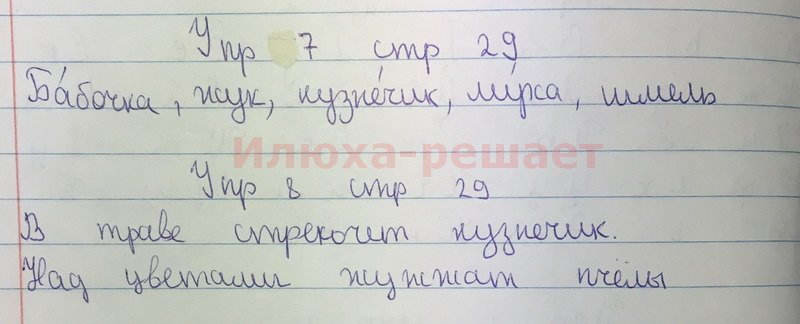 Упр 7 стр 29
Ба́бочка, жук, кузне́чик, му́ха, шмель
Илюха-решает
Упр 8 стр 29
В траве стрекочит кузнечик.
Над цветами жужжат пчёлы